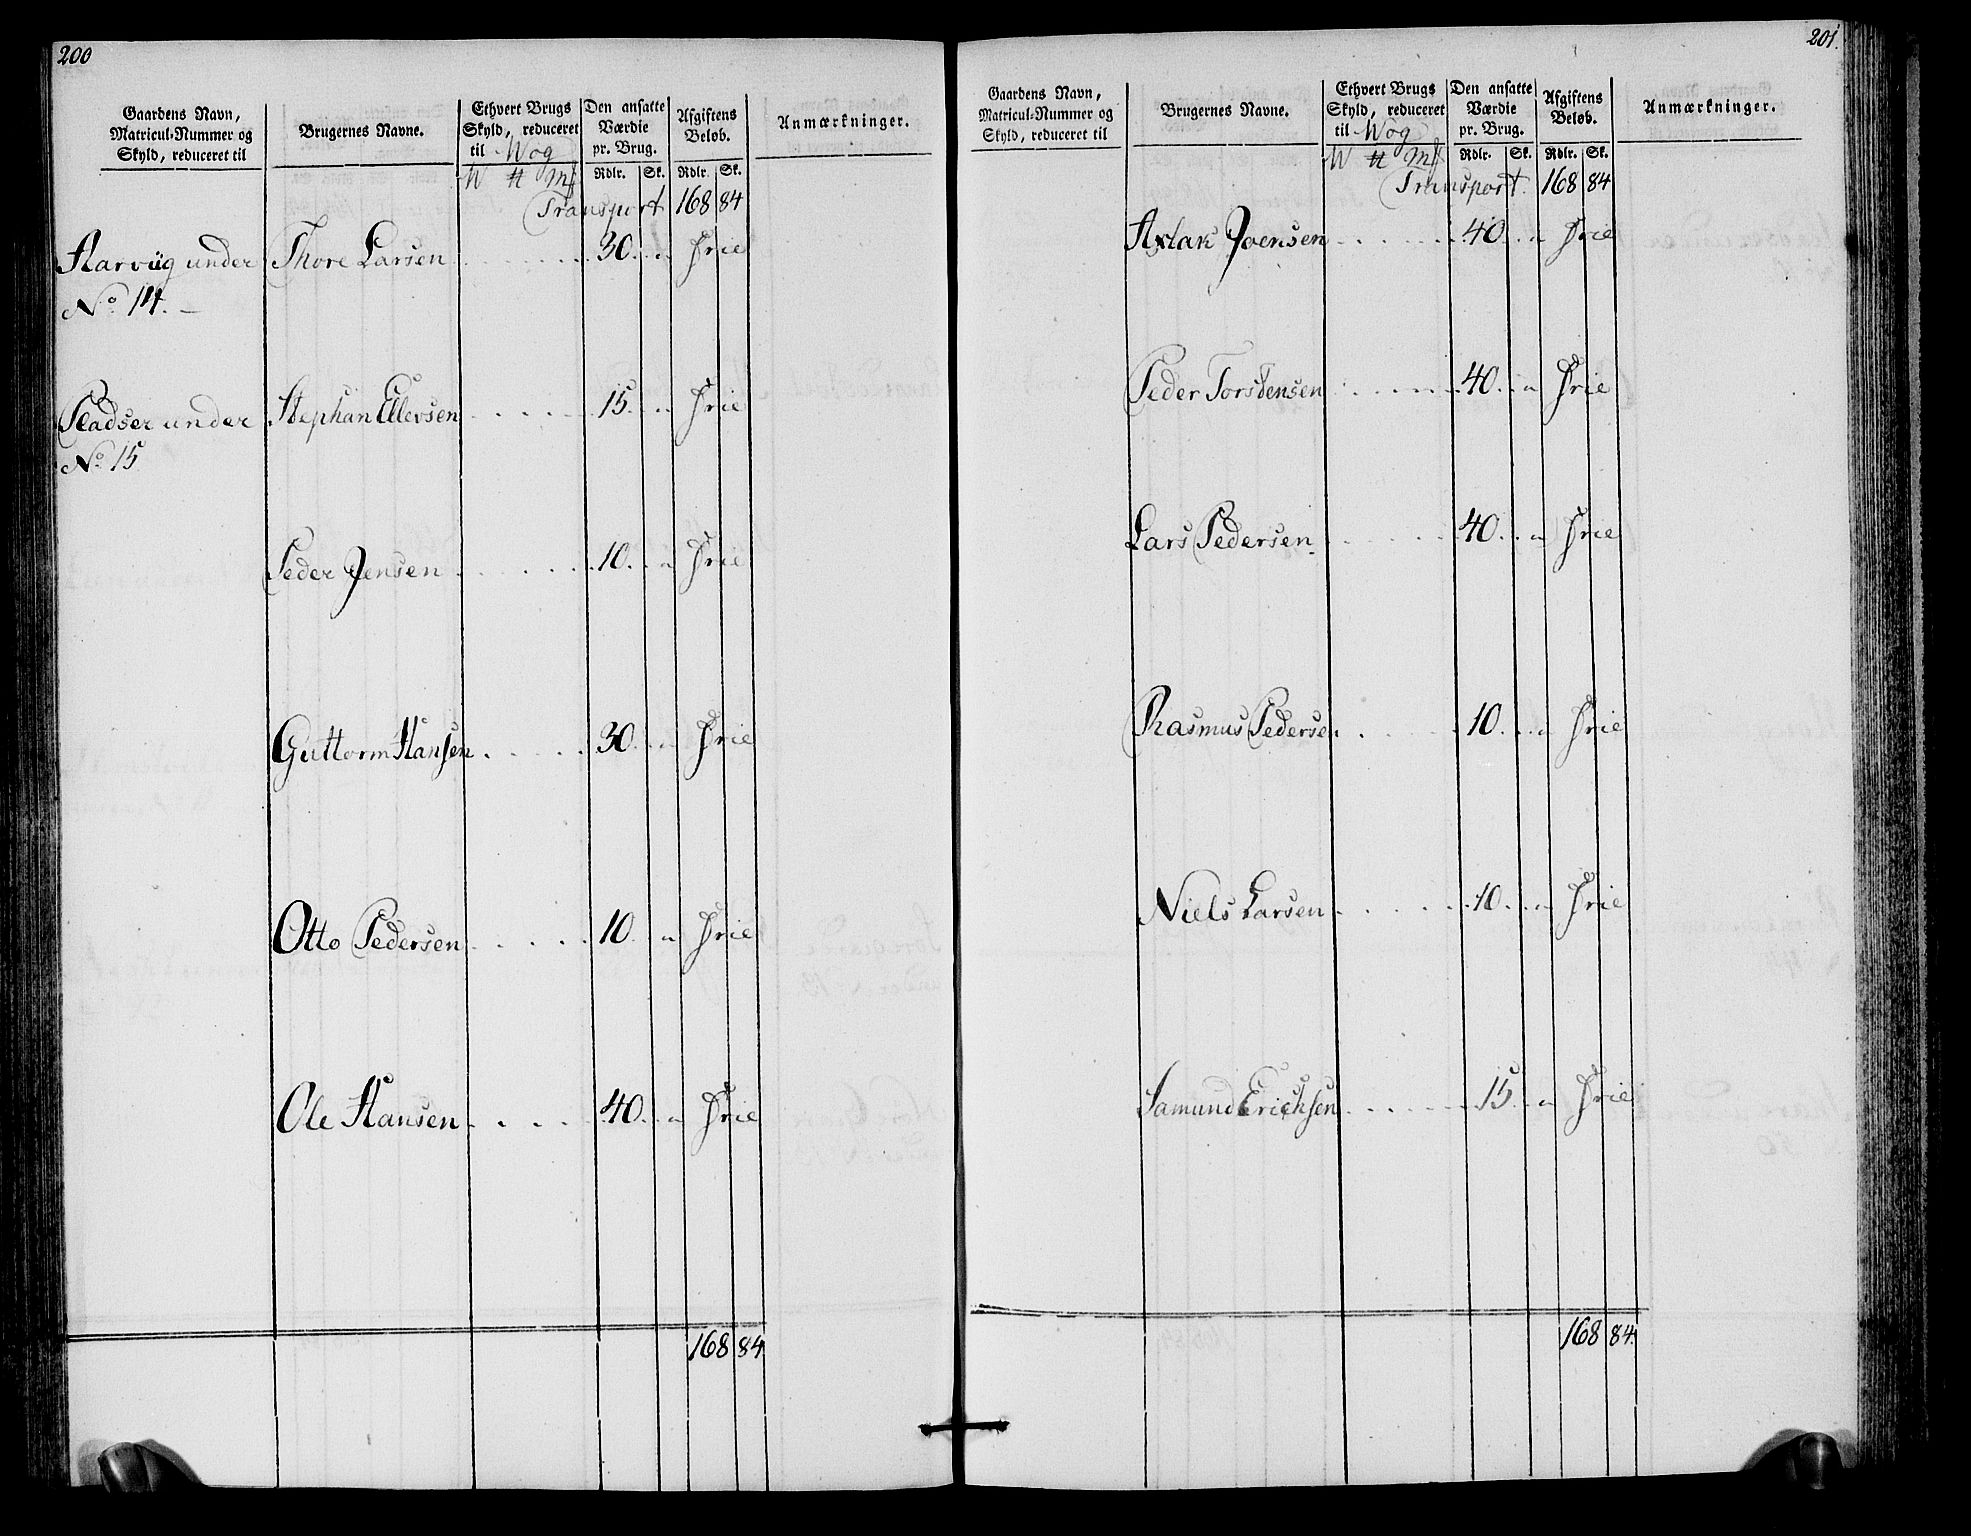 200
Gaardens Navn,
Matricul-Nummer og
Skyld, reduceret til
Brugernes Navne.
Ethvert Brugs
Skyld, reduceret
til Wog
W ℔ Mk
Den ansatte
Værdie
pr. Brug.
Rdlr. Sk.
Afgiftens
Beløb.
Rdlr. Sk.
Anmærkninger.
Transport 168 84
Aarviig under Thore Larsen 30 " Frie
No 14.
Pladser under Stephan Ellevsen 15 " Frie
No 15
Peder Jensen 10 " Frie
Guttorm Hansen 30 " Frie
Otto Pedersen 10 " Frie
Ole Hansen 40 " Frie
168 84
201.
Gaardens Navn,
Matricul-Nummer og
Skyld, reduceret til
Brugernes Navne.
Ethvert Brugs
Skyld, reduceret
til Wog
W ℔ Mk
Den ansatte
Værdie
pr. Brug.
Rdlr. Sk.
Afgiftens
Beløb.
Rdlr. Sk.
Anmærkninger.
Transport 168 84
Axlak Joensen 40 " Frie
Peder Torstensen 40 " Frie
Lars Pedersen 40 " Frie
Rasmus Pedersen 10 " Frie
Niels Larsen 10 " Frie
Samund Ericksen 15 " Frie
168 84